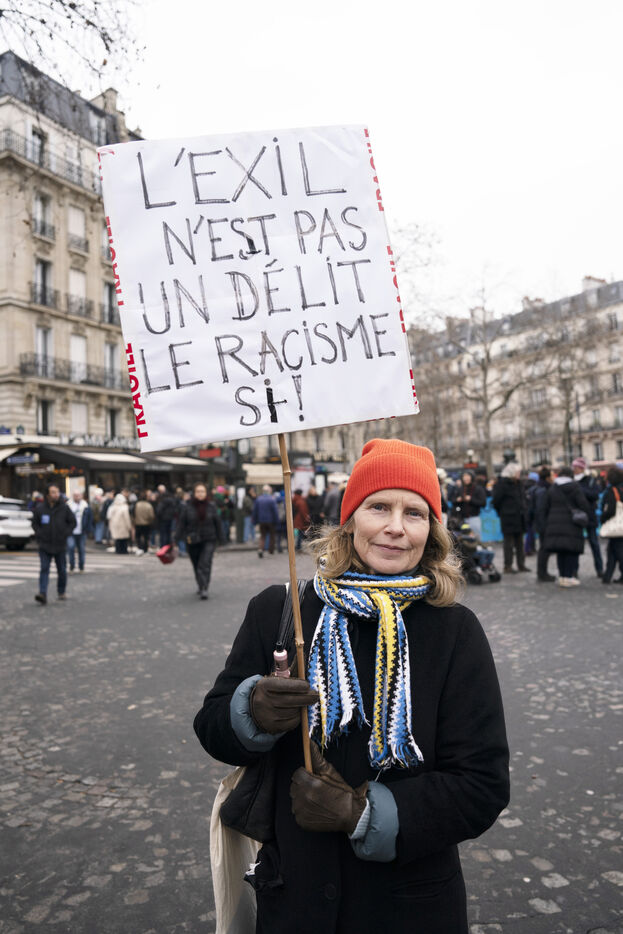 L'EXIL
N'EST PAS
UN DÉLIT
LE RACISME
SI!
FRAGILE